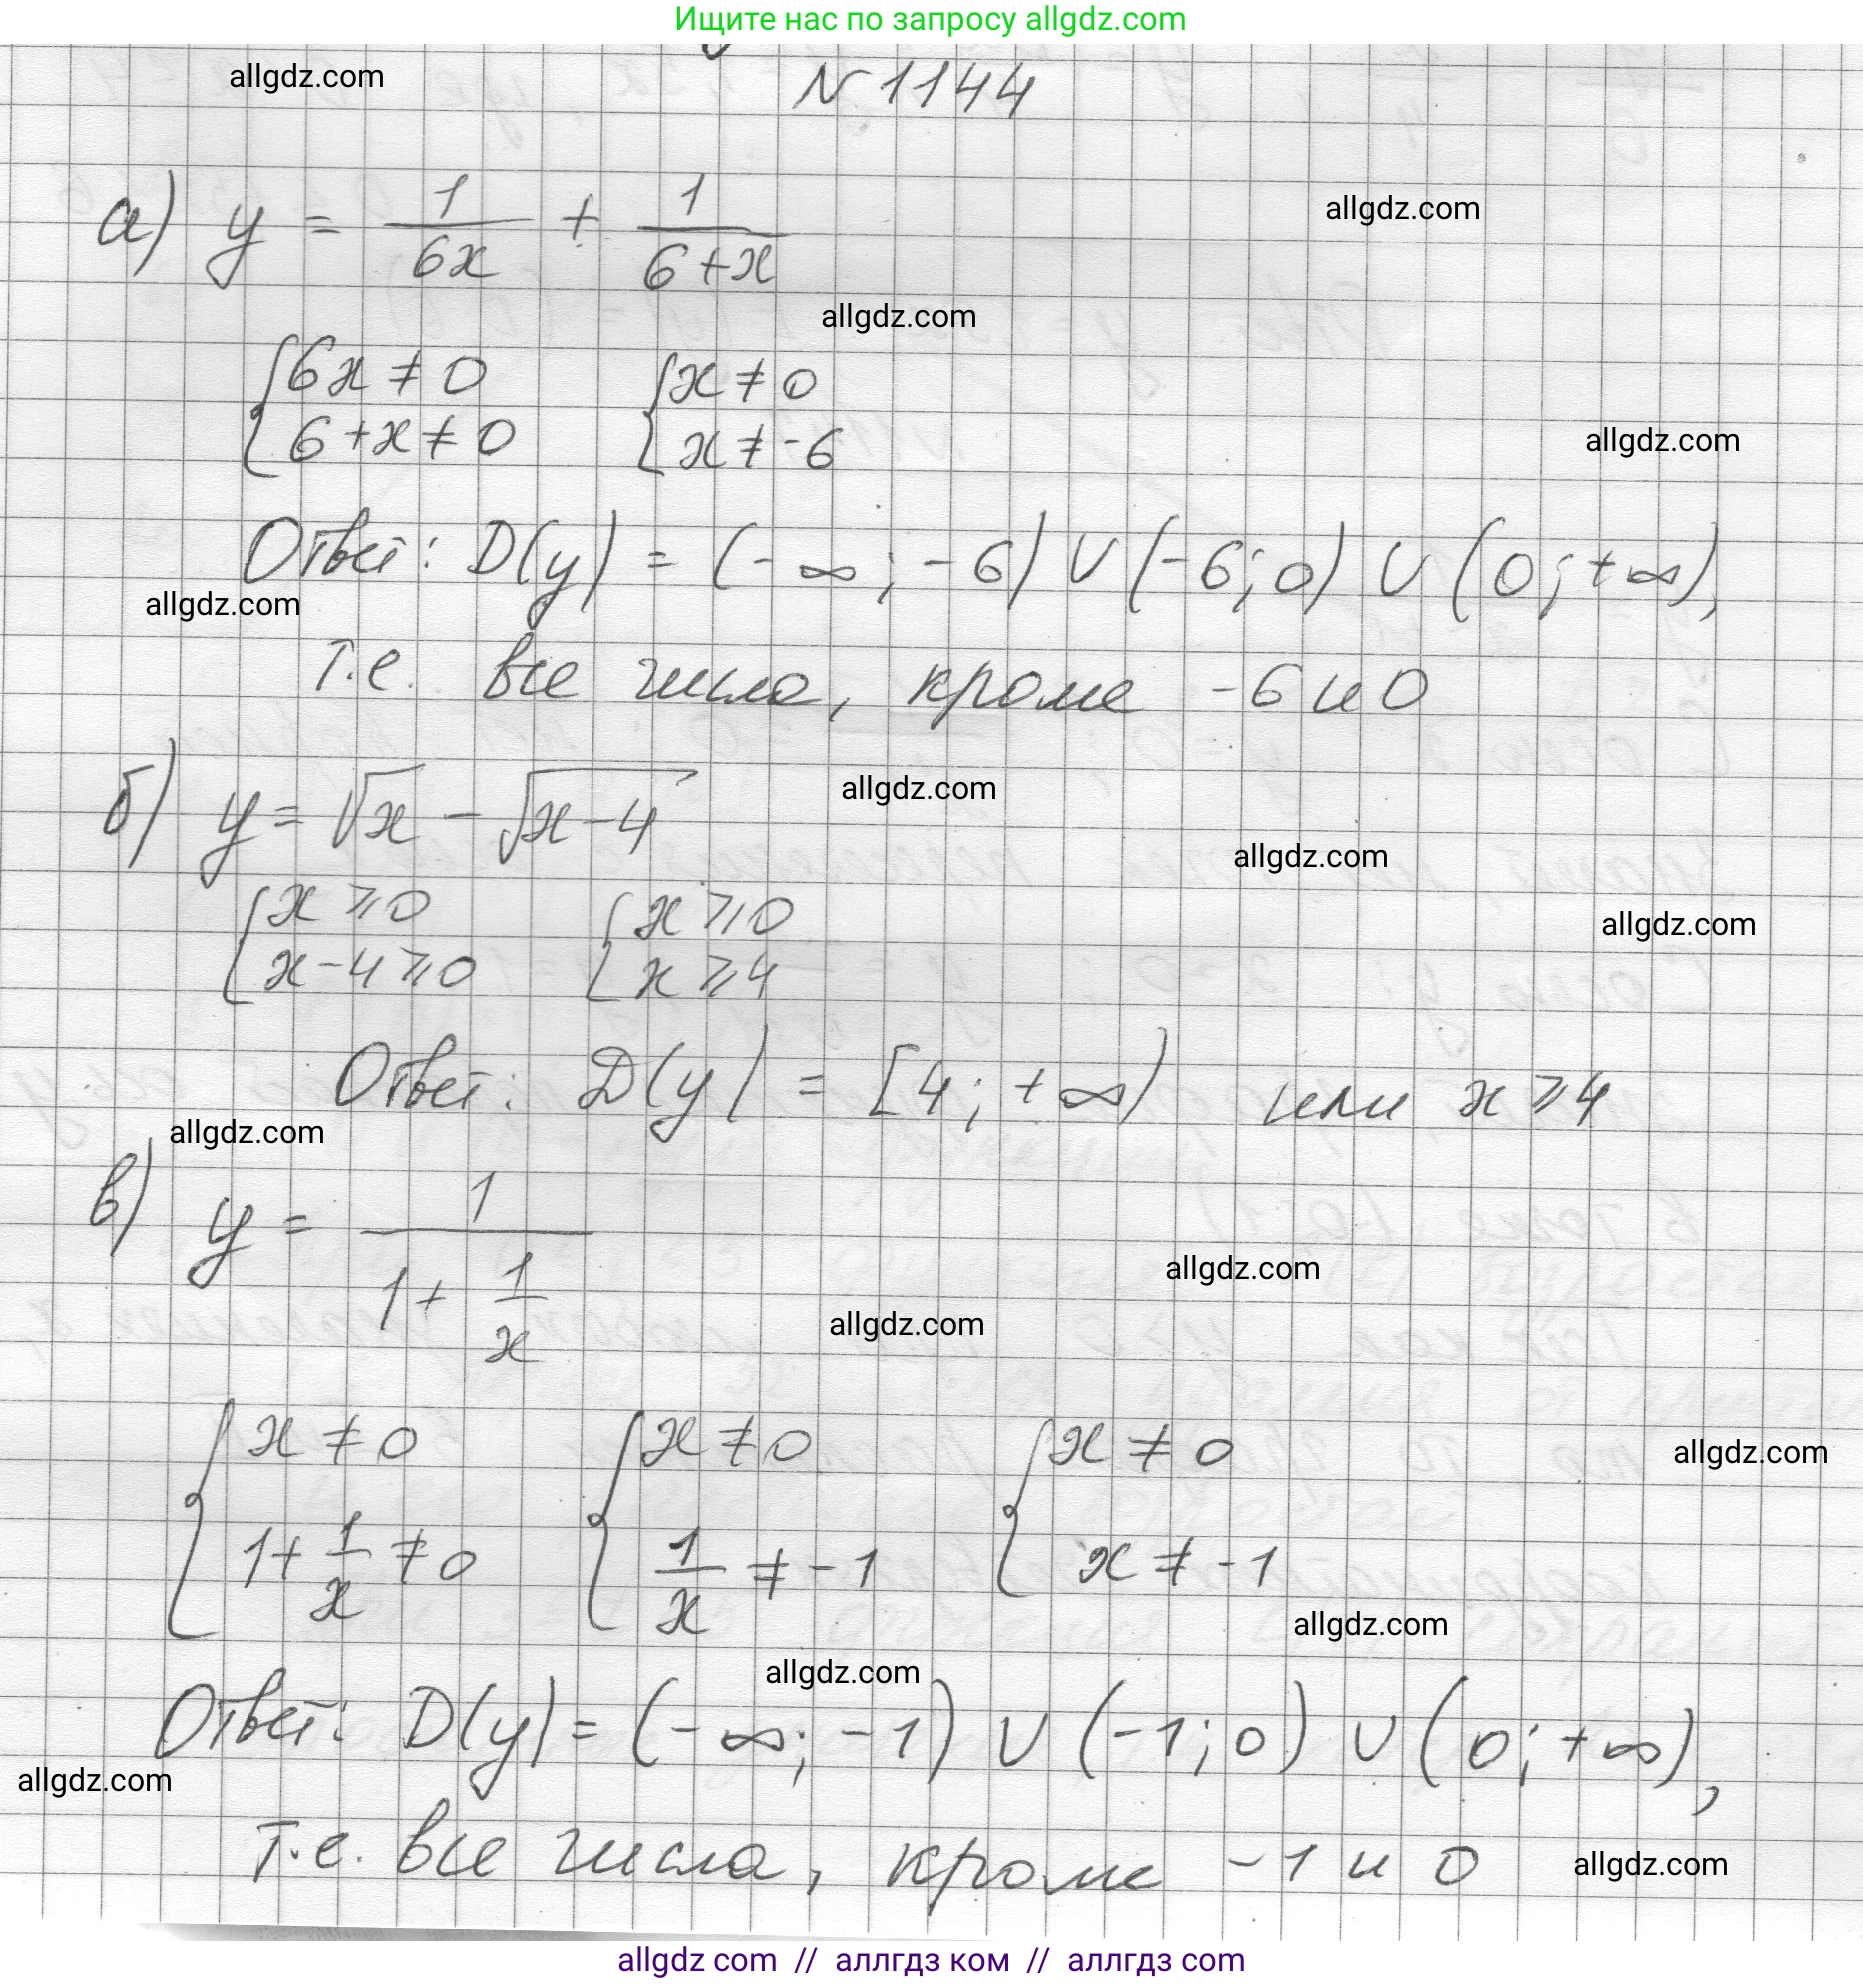 Ищите нас по запросу allgdz.com
allgdz.com
N 1144
а) y = 1/(6x) + 1/(6+x)
allgdz.com
allgdz.com
{ 6x ≠ 0 { x ≠ 0
{ 6+x ≠ 0 { x ≠ -6
allgdz.com
Ответ: D(y) = (-∞; -6) ∪ (-6; 0) ∪ (0; +∞),
allgdz.com
т.е. все числа, кроме -6 и 0
б) y = √x - √(x-4)
allgdz.com
allgdz.com
{ x ⩾ 0 { x ⩾ 0
{ x-4 ⩾ 0 { x ⩾ 4
allgdz.com
Ответ: D(y) = [4; +∞) или x ⩾ 4
allgdz.com
в) y = 1/(1 + 1/x)
allgdz.com
allgdz.com
{ x ≠ 0 { x ≠ 0 { x ≠ 0
allgdz.com
{ 1 + 1/x ≠ 0 { 1/x ≠ -1 { x ≠ -1
allgdz.com
allgdz.com
Ответ: D(y) = (-∞; -1) ∪ (-1; 0) ∪ (0; +∞),
allgdz.com
т.е. все числа, кроме -1 и 0
allgdz.com
allgdz com // аллгдз ком // аллгдз com